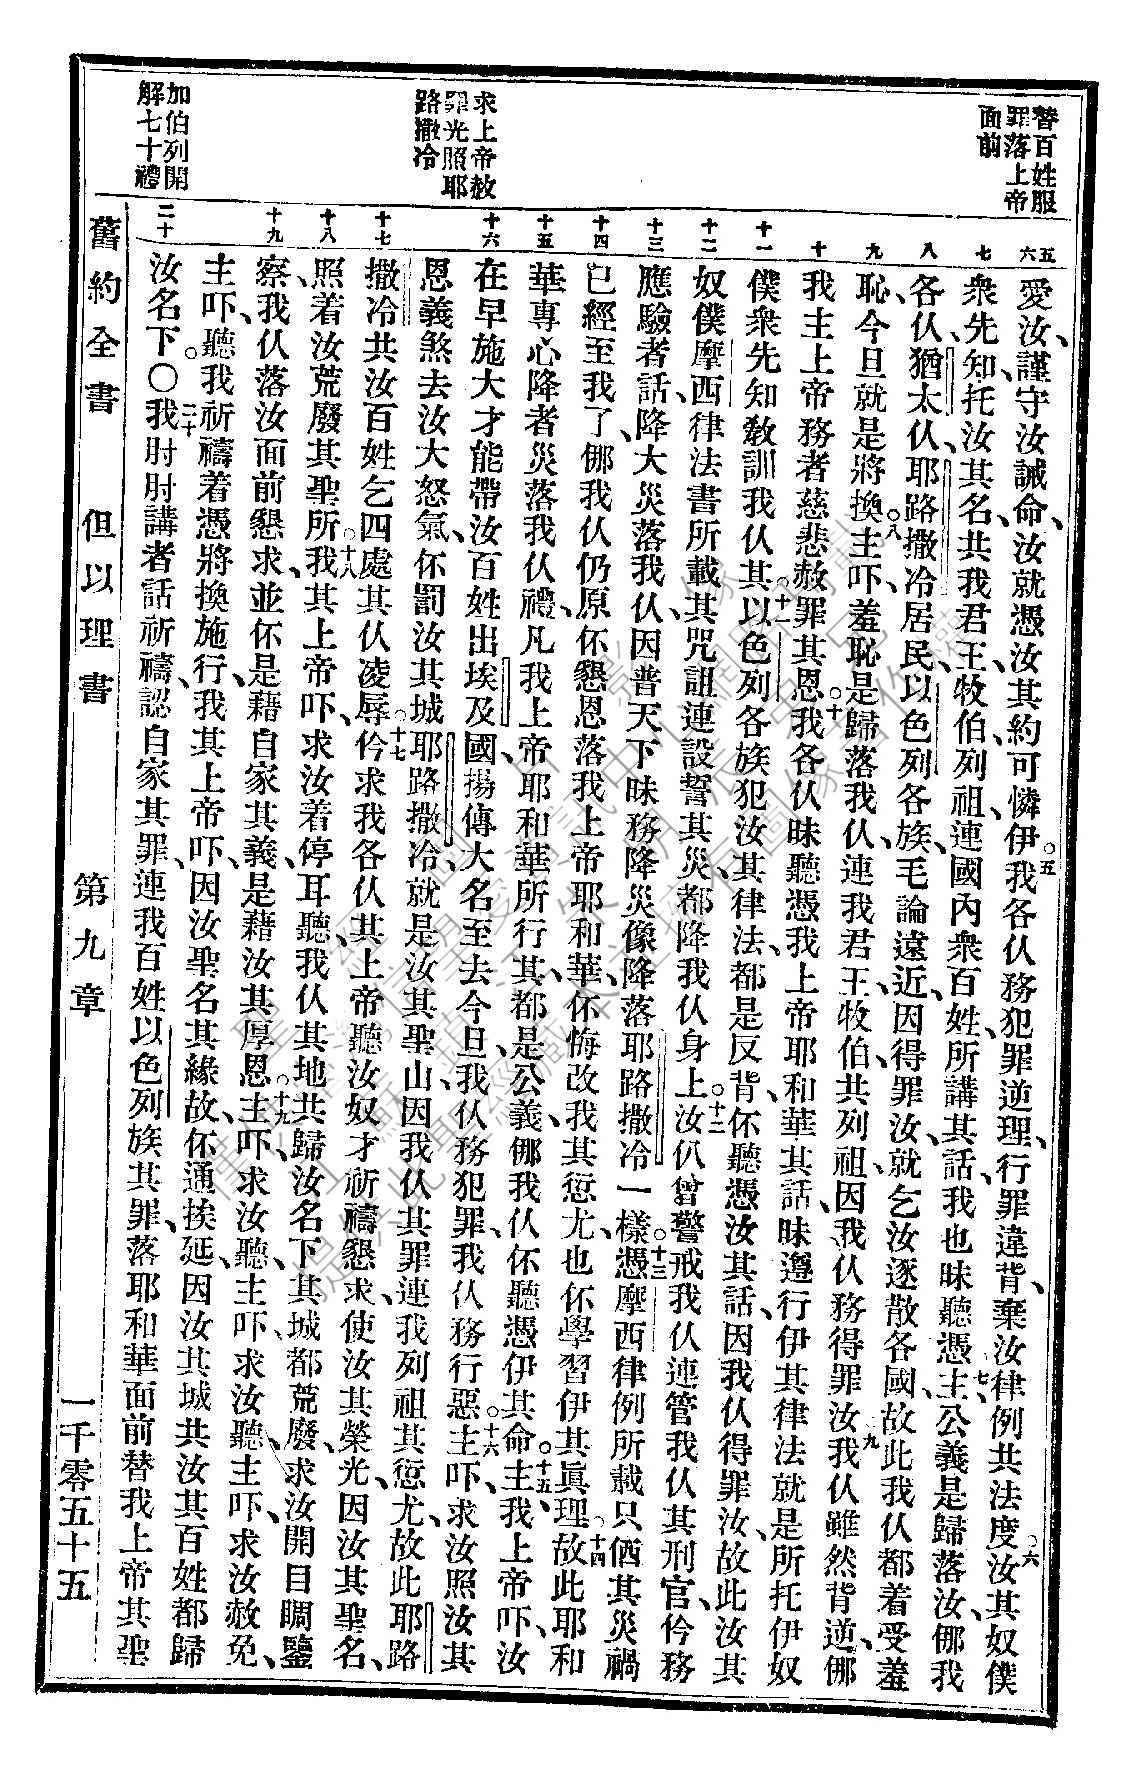 替百姓服
罪落上帝
面前
求上帝赦
罪光照耶
路撒冷
加伯列開
解七十禮
五
六
七
八
九
十
十一
十二
十三
十四
十五
十六
十七
十八
十九
二十
愛汝、謹守汝誡命、汝就憑汝其約可憐伊。五我各仈務犯罪逆理、行罪違背、棄汝律例共法度。六汝其奴僕
衆先知、托汝其名、共我君王、牧伯列祖、連國內衆百姓、所講其話、我也昧聽憑。七主、公義是歸落汝、倻我
各仈、猶太仈、耶路撒冷居民、以色列各族、毛論遠近、因得罪汝、就乞汝逐散各國、故此我仈都着受羞
恥、今旦就是將換。八主吓、羞恥是歸落我仈、連我君王、牧伯、共列祖、因我仈務得罪汝。九我仈雖然背逆、倻
我主上帝務者慈悲赦罪其恩。十我各仈昧聽憑我上帝耶和華其話、昧遵行伊其律法、就是所托伊奴
僕衆先知教訓我仈其。十一以色列各族犯汝其律法、都是反背、伓聽憑汝其話、因我仈得罪汝、故此汝其
奴僕摩西律法書所載其咒詛、連設誓其災、都降我仈身上。十二汝仈曾警戒我仈、連管我仈其刑官、仱務
應驗者話、降大災落我仈、因普天下昧務降災像降落耶路撒冷一樣。十三憑摩西律例所載只佰其災禍
已經至我了、倻我仈仍原伓懇恩落我上帝耶和華、伓悔改我其愆尤、也伓學習伊其眞理。十四故此耶和
華專心降者災落我仈、禮凡我上帝耶和華所行其、都是公義、倻我仈伓聽憑伊其命。十五主我上帝吓、汝
在早施大才能、帶汝百姓出埃及國、揚傳大名至去今旦、我仈務犯罪、我仈務行惡。十六主吓、求汝照汝其
恩義、煞去汝大怒氣、伓罰汝其城耶路撒冷、就是汝其聖山、因我仈其罪、連我列祖其愆尤、故此耶路
撒冷共汝百姓乞四處其仈凌辱。十七仱求我各仈其上帝聽汝奴才祈禱懇求、使汝其榮光、因汝其聖名、
照着汝荒廢其聖所。十八我其上帝吓、求汝着停耳聽、我仈其地共歸汝名下其城都荒廢、求汝開目睭鑒
察、我仈落汝面前懇求、並伓是藉自家其義、是藉汝其厚恩。十九主吓、求汝聽、主吓、求汝聽、主吓、求汝赦免、
主吓、聽我祈禱着憑將換施行、我其上帝吓、因汝聖名其緣故、伓通挨延、因汝其城共汝其百姓都歸
汝名下。〇二十我肘肘講者話祈禱、認自家其罪、連我百姓以色列族其罪、落耶和華面前替我上帝其聖
舊約全書 但以理書 第九章 一千零五十五